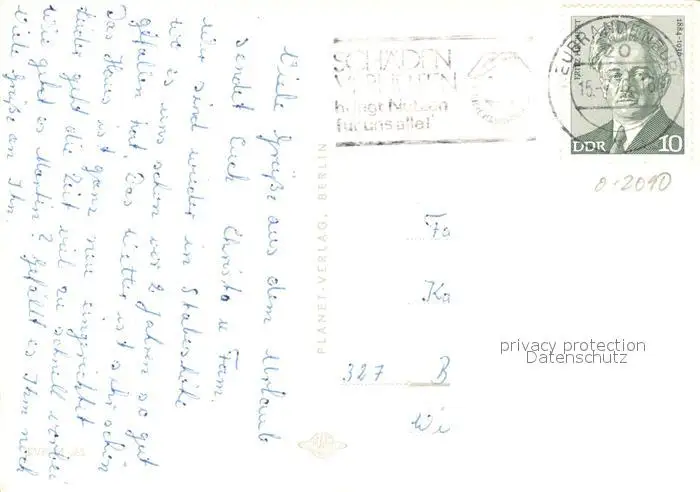 Viele Grüße aus dem Urlaub
sendet Euch Christa u. Fam.
Wir sind wieder in
wo es uns schon vor 2 Jahren so gut
gefallen hat. Das Wetter ist sehr schön
Das Haus ist ganz neu eingerichtet
Leider geht die Zeit viel zu schnell vorbei
Wie geht es Martin? Gefällt es Ihm noch
Viele Grüße an Ihn.
PLANET-VERLAG, BERLIN
SCHÄDEN
VERHÜTEN
bringt Nutzen
für uns alle!
NEUBRANDENBURG
20
15.
1874-1930
DDR 10
0-2090
Fa
Ka
327 B
Wi
privacy protection
Datenschutz